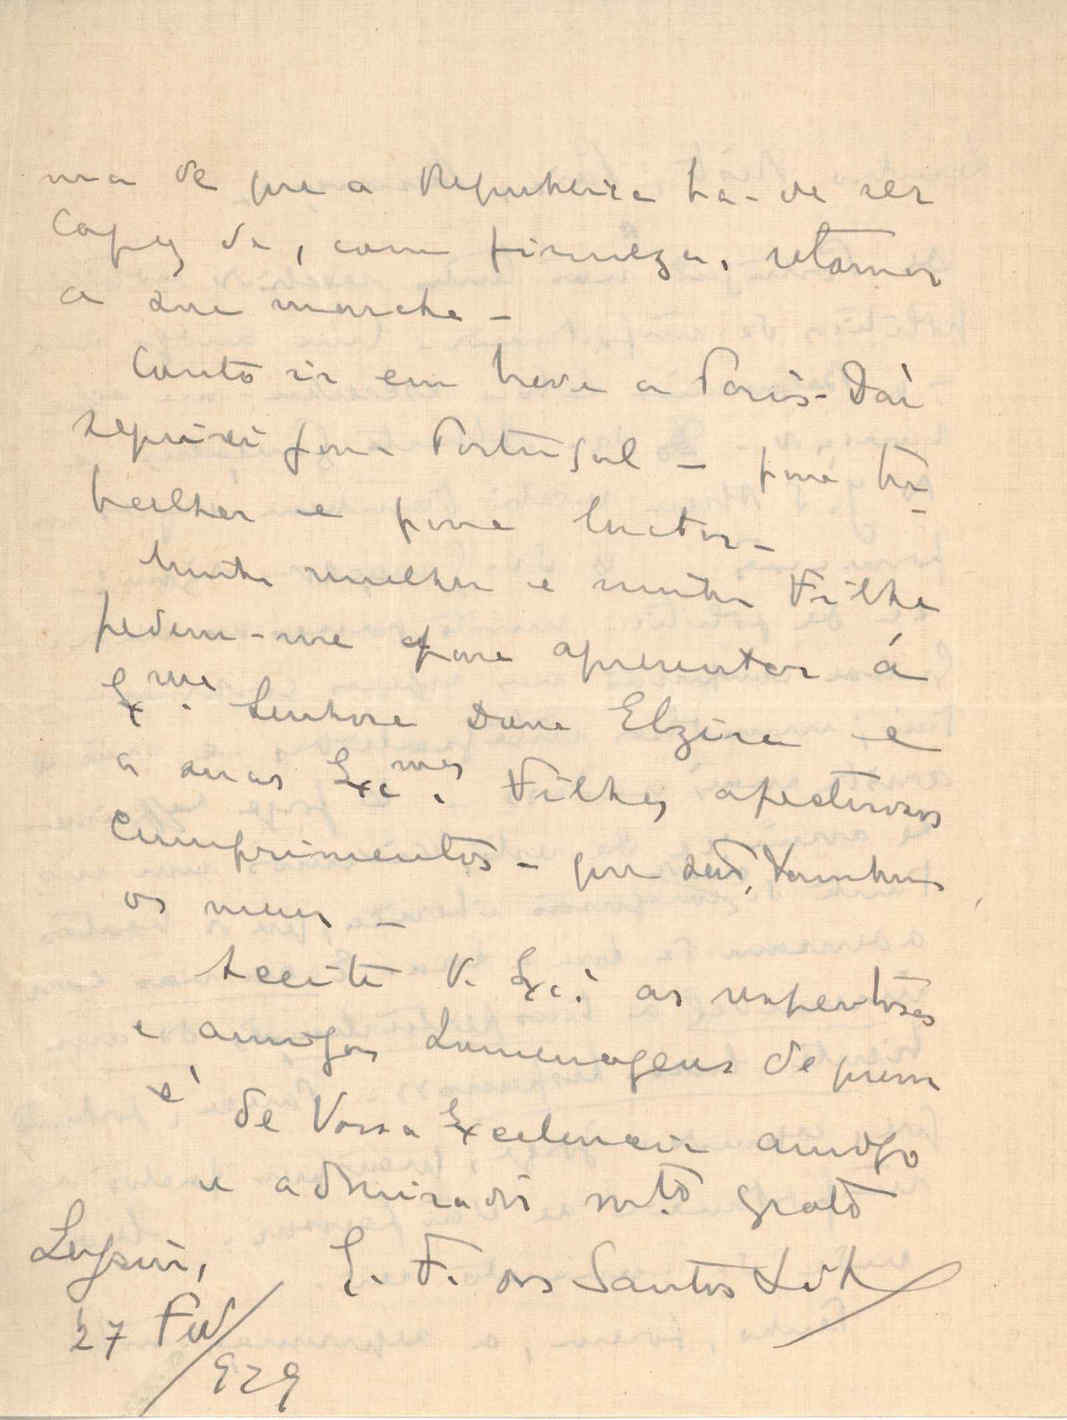 ma de que a Republica ha-de ser
capaz de, com firmeza, retomar
a sua marcha -
Conto ir em breve a Paris - Daí
seguirei para Portugal - para tra-
balhar e para luctar -
Minha mulher e minha Filha
pedem-me para apresentar á
Exma. Senhora Dona Elzira e
a suas Excmas. Filhas afectuosos
cumprimentos - que são, tambem
os meus -
Aceite V. Exc.ª as respeitosas
e amigas homenagens de quem
é de Vossa Excelencia amigo
e admirador mto. grato
E. F. dos Santos Silva
27 Fev/
929